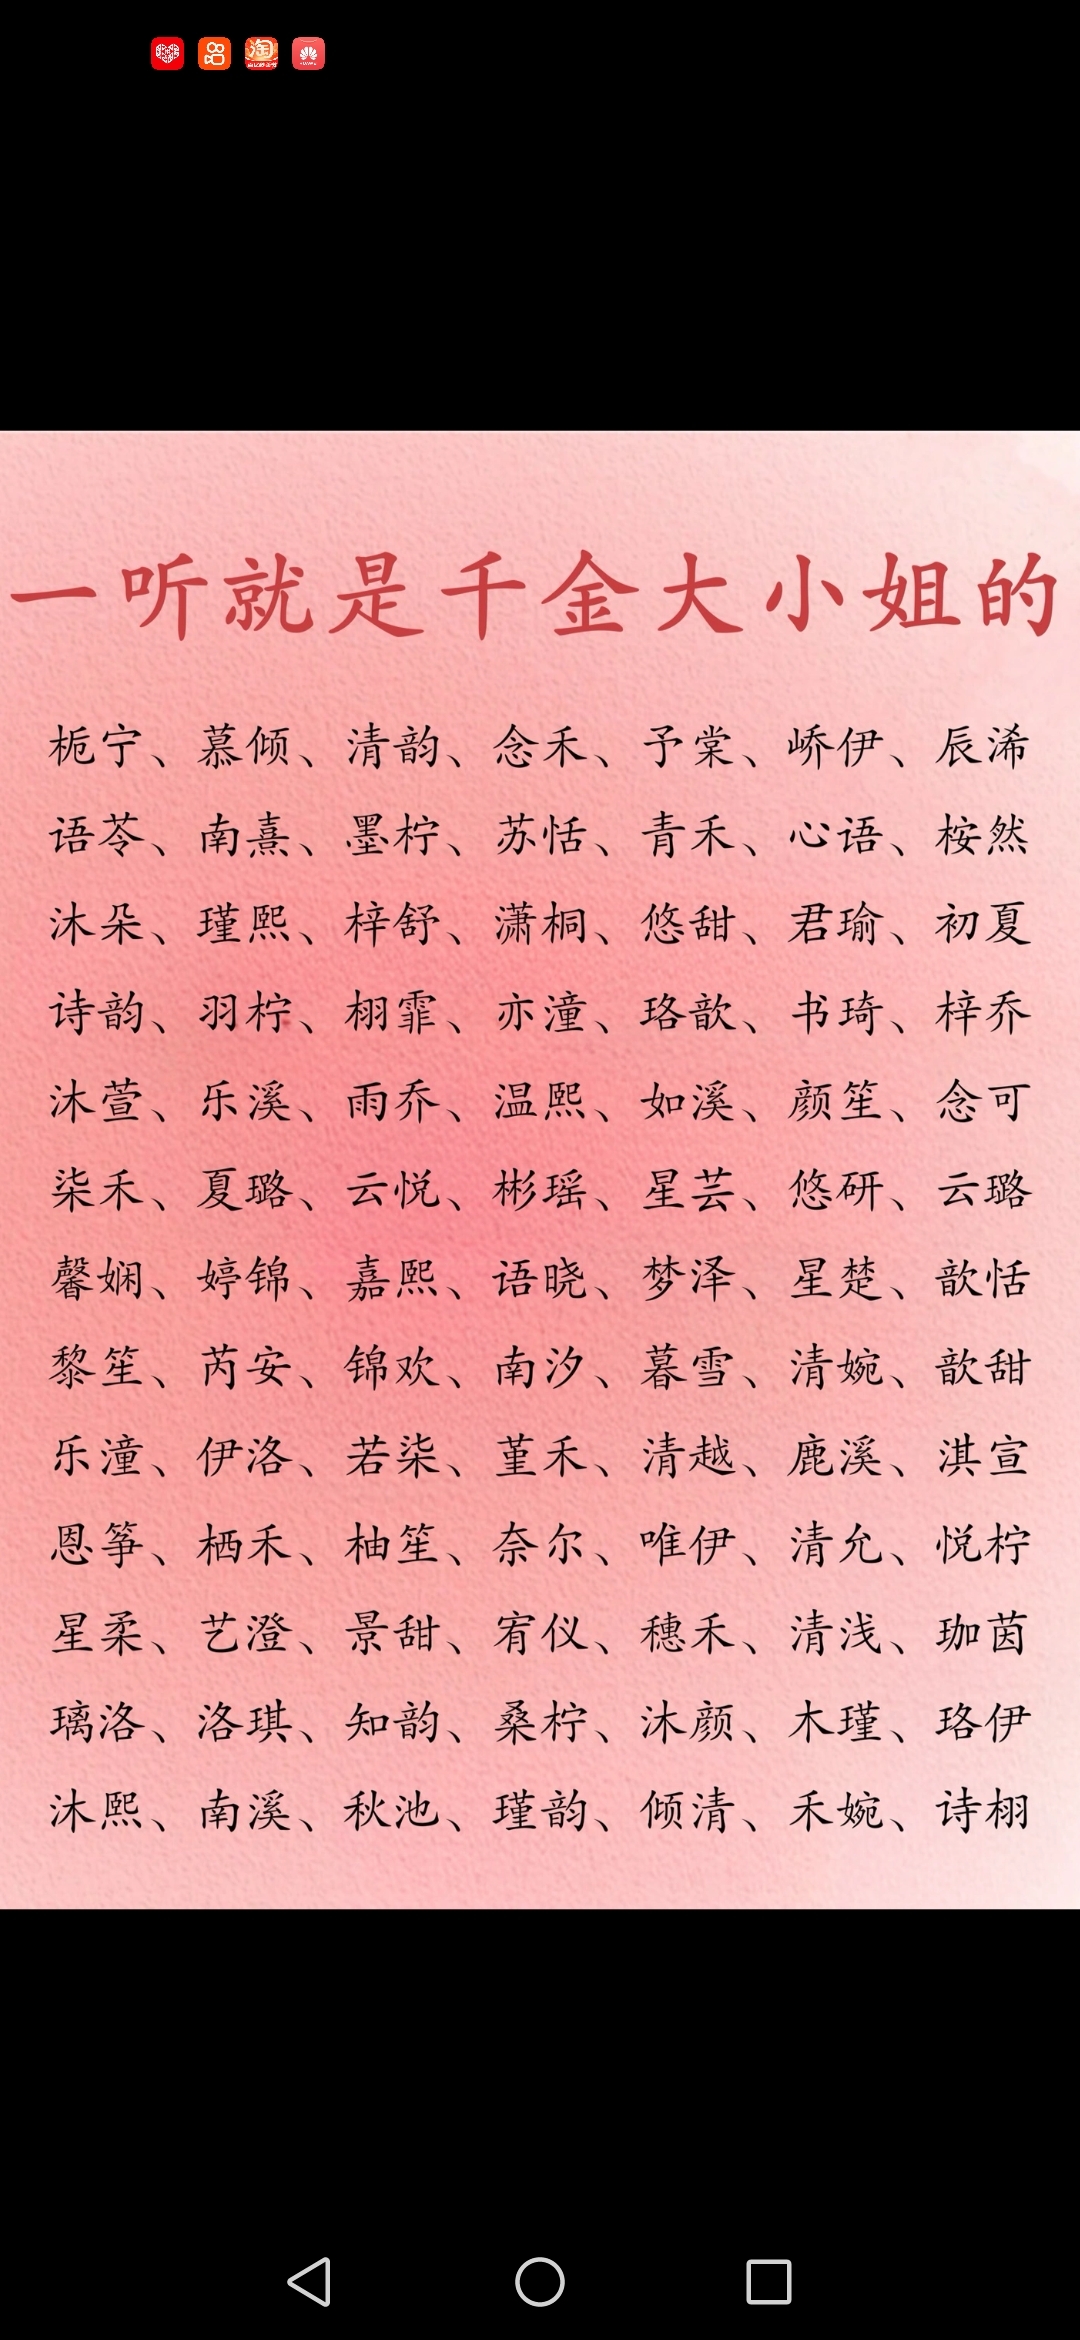 淘
一听就是千金大小姐的
栀宁、慕倾、清韵、念禾、予棠、峤伊、辰浠
语苓、南熹、墨柠、苏恬、青禾、心语、桉然
沐朵、瑾熙、梓舒、潇桐、悠甜、君瑜、初夏
诗韵、羽柠、栩霏、亦潼、珞歆、书琦、梓乔
沐萱、乐溪、雨乔、温熙、如溪、颜笙、念可
柒禾、夏璐、云悦、彬瑶、星芸、悠研、云璐
馨娴、婷锦、嘉熙、语晓、梦泽、星楚、歆恬
黎笙、芮安、锦欢、南汐、暮雪、清婉、歆甜
乐潼、伊洛、若柒、堇禾、清越、鹿溪、淇宣
恩筝、栖禾、柚笙、奈尔、唯伊、清允、悦柠
星柔、艺澄、景甜、宥仪、穗禾、清浅、珈茵
璃洛、洛琪、知韵、桑柠、沐颜、木瑾、珞伊
沐熙、南溪、秋池、瑾韵、倾清、禾婉、诗栩